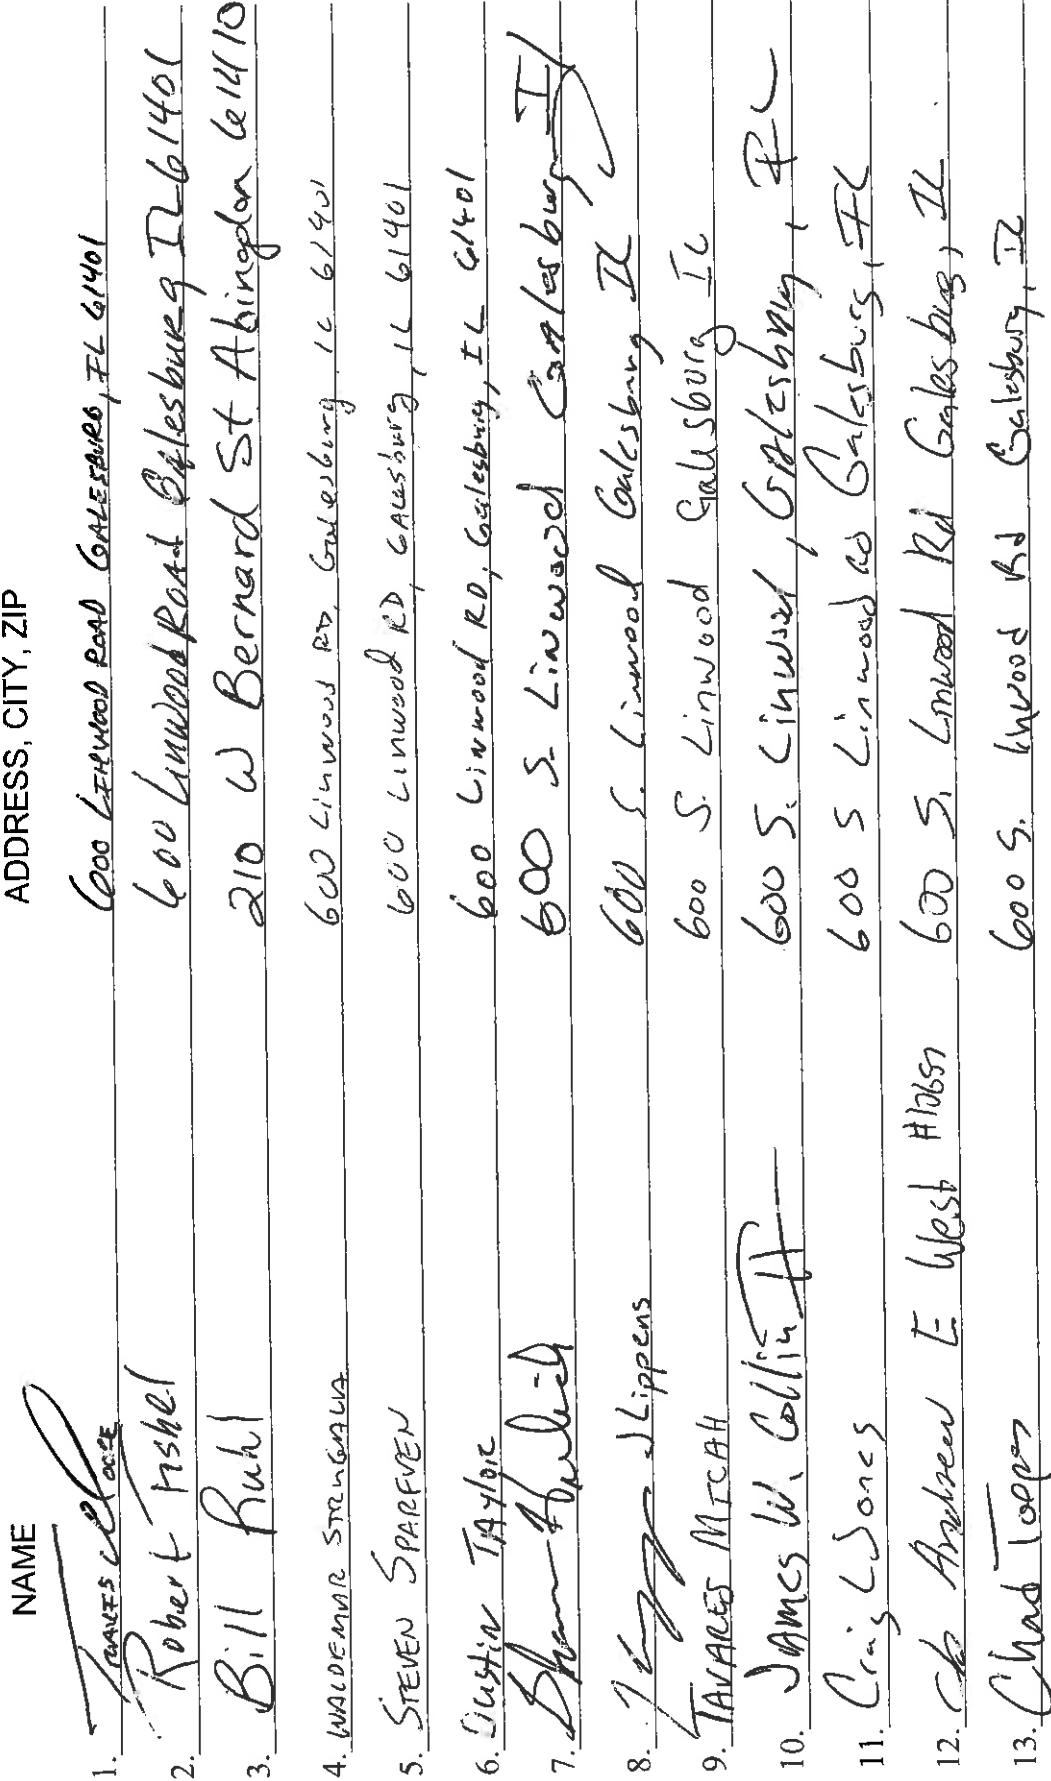 NAME ADDRESS, CITY, ZIP
1. 600 LINWOOD ROAD GALESBURG, IL 61401
2. Robert Fishel 600 Linwood Road Galesburg IL 61401
3. Bill Ruhl 210 W Bernard St Abingdon 61410
4. WALDEMAR 600 Linwood RD, Galesburg, IL 61401
5. STEVEN SPARFVEN 600 Linwood RD, GALESburg, IL 61401
6. Dustin TAYlor 600 Linwood RD, Galesburg, IL 61401
7. 600 S. Linwood GAlesburg IL
8. Lippens 600 S. Linwood Galesburg IL
9. TAVARES MICAH 600 S. Linwood Galesburg IL
10. JAMES W. Collin II 600 S. Linwood, GAlesburg, IL
11. Craig L Jones 600 S Linwood RD Galesburg, IL
12. E West 600 S. Linwood Rd Galesburg, IL
13. Chad 600 S. Linwood Rd Galesburg, IL